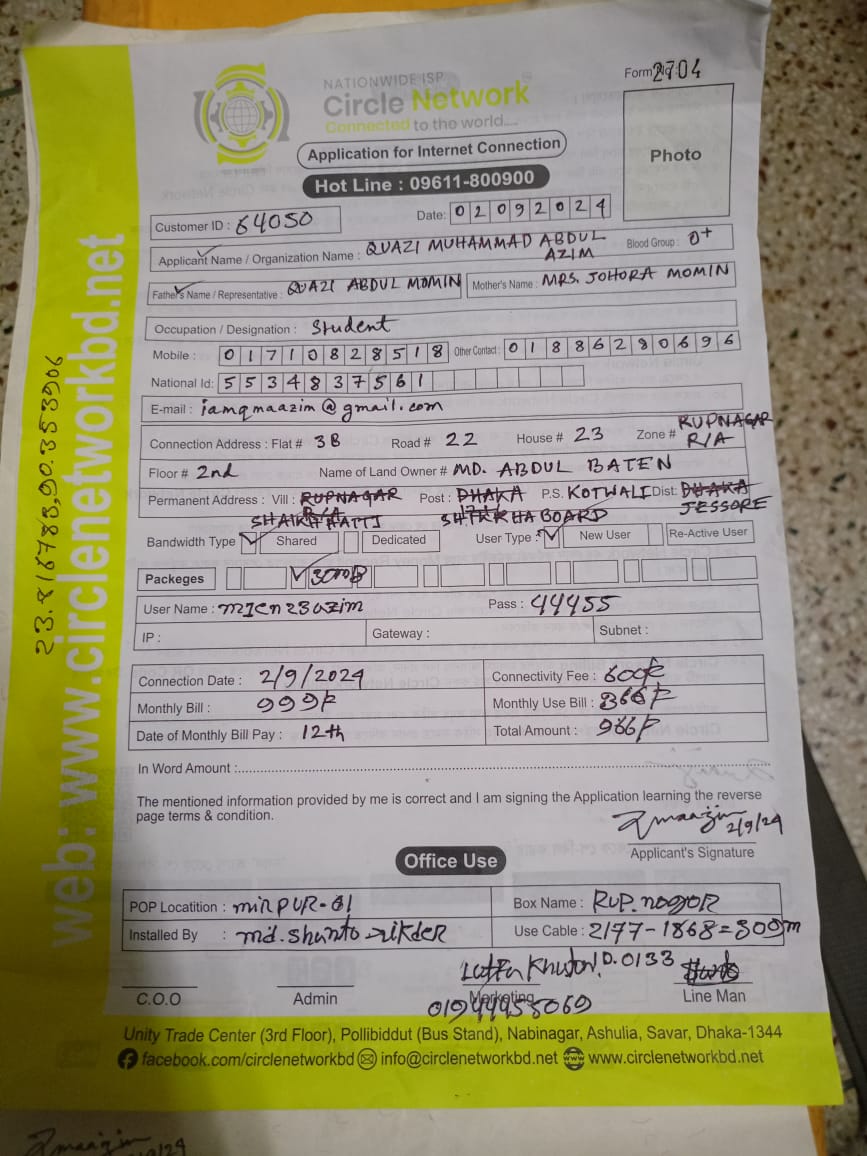 NATIONWIDE ISP
Circle Network
Connected to the world....
Form 2704
Photo
Application for Internet Connection
Hot Line : 09611-800900
Customer ID : 64050
Date: 02092024
Applicant Name / Organization Name : QUAZI MUHAMMAD ABDUL AZIM
Blood Group : O+
Father's Name / Representative : QUAZI ABDUL MOMIN
Mother's Name : MRS. JOHORA MOMIN
Occupation / Designation : Student
Mobile : 01710828518
Other Contact : 01886280696
National Id: 5534837561
E-mail : iamqmaazim@gmail.com
Connection Address : Flat # 3B Road # 22 House # 23 Zone # RUPNAGAR R/A
Floor # 2nd Name of Land Owner # MD. ABDUL BATEN
Permanent Address : Vill : RUPNAGAR R/A Post : DHAKA P.S. KOTWALI Dist: DHAKA
SHAIKHHATTI BOARD JESSORE
Bandwidth Type Shared Dedicated User Type : New User Re-Active User
Packeges
User Name : mIcn23azim Pass : 44455
IP : Gateway : Subnet :
Connection Date : 2/9/2024 Connectivity Fee : 600
Monthly Bill : 999 Monthly Use Bill : 366
Date of Monthly Bill Pay : 12th Total Amount : 966
In Word Amount :
The mentioned information provided by me is correct and I am signing the Application learning the reverse
page terms & condition.
2/9/24
Applicant's Signature
Office Use
POP Locatition : mirpur-01 Box Name : Rup.nogor
Installed By : md. Shanto Use Cable : 2177-1868=309m
D. 0133
C.O.O Admin Marketing Line Man
01944458069
Unity Trade Center (3rd Floor), Pollibiddut (Bus Stand), Nabinagar, Ashulia, Savar, Dhaka-1344
facebook.com/circlenetworkbd info@circlenetworkbd.net www.circlenetworkbd.net
web: www.circlenetworkbd.net
23.816788,90.353906